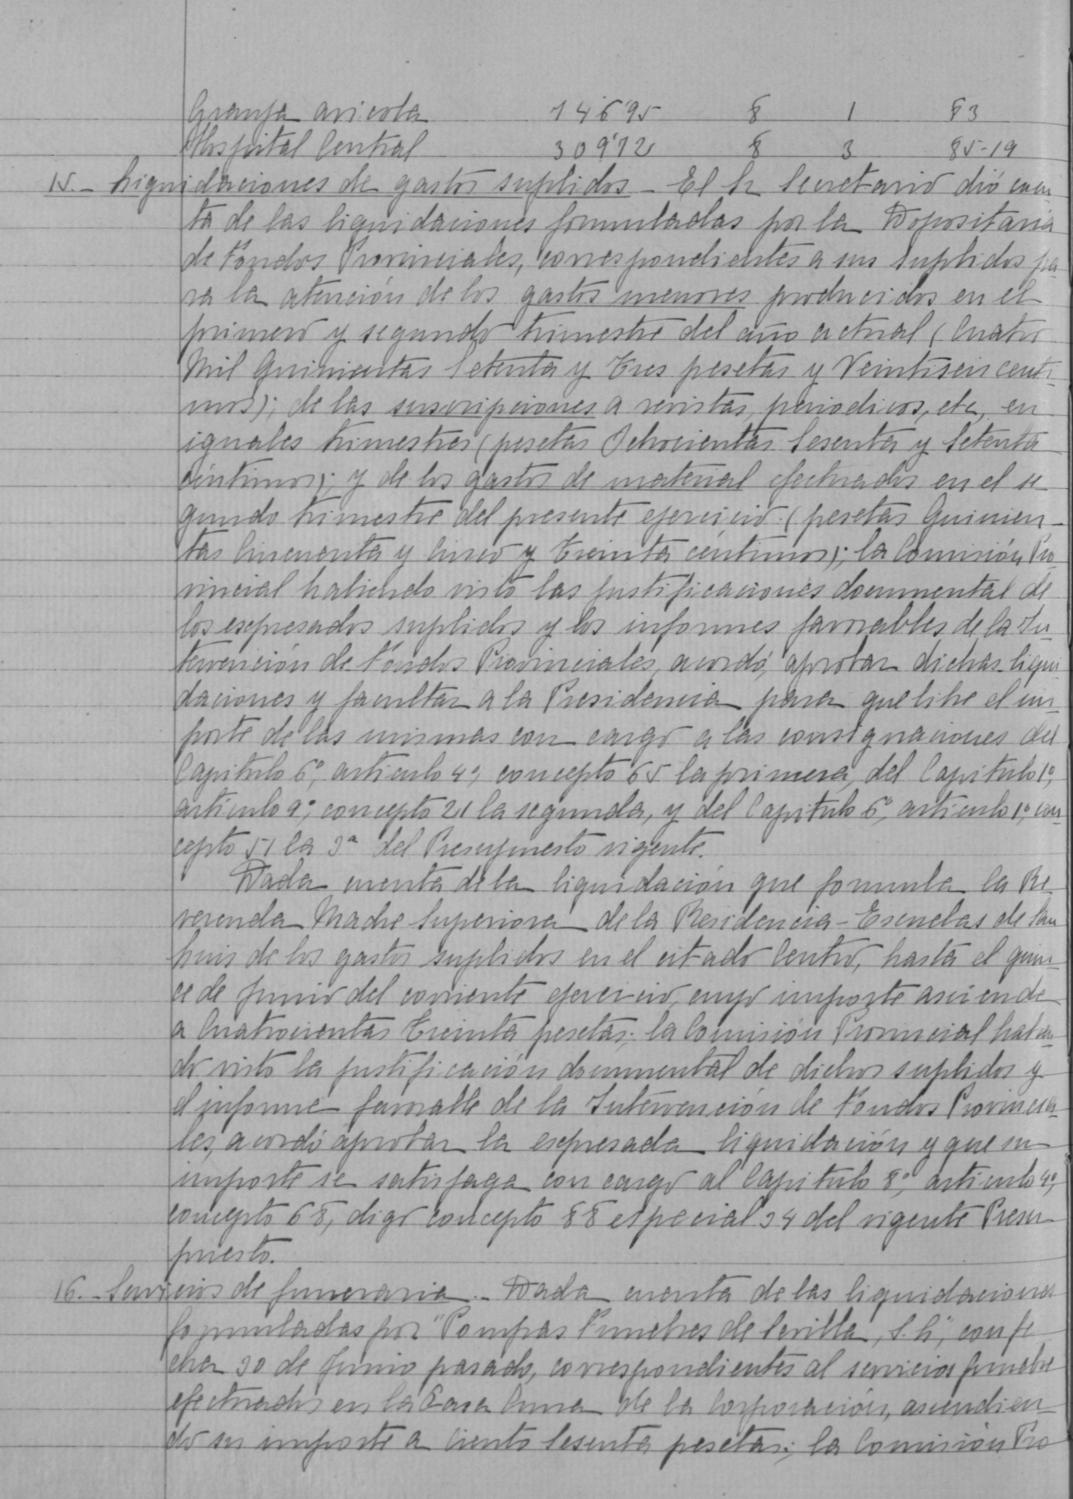 Granja avicola 146'95 8 1 83
Hospital Central 309'72 8 3 85-19
15.- Liquidaciones de gastos suplidos - El Sr Secretario dió cuen
ta de las liquidaciones formuladas por la Depositaria
de Fondos Provinciales, correspondientes a sus suplidos pa
ra la atención de los gastos menores producidos en el
primero y segundo trimestre del año actual (Cuatro
Mil Quinientas Setenta y Tres pesetas y Veintiseis centi-
mos); de las suscripciones a revistas, periodicos, etc, en
iguales trimestres (pesetas Ochocientas Sesenta y Setenta
céntimos); y de los gastos de material efectuados en el se
gundo trimestre del presente ejercicio (pesetas Quinien-
tas Cincuenta y Cinco y Treinta céntimos); la Comisión Pro-
vincial habiendo visto las justificaciones documental de
los expresados suplidos y los informes favorables de la In-
tervención de Fondos Provinciales, acordó, aprobar dichas liqui
daciones y facultar a la Presidencia para que libre el im-
porte de las mismas con cargo a las consignaciones del
Capitulo 6º, articulo 4º, concepto 65 la primera, del Capitulo 1º,
articulo 9º, concepto 21 la segunda, y del Capitulo 6º, articulo 1º, con-
cepto 51 la 3ª del Presupuesto vigente.
Dada cuenta de la liquidación que formula la Re-
verenda Madre Superiora de la Residencia-Escuelas de San
Luis de los gastos suplidos en el citado Centro, hasta el quin-
ce de Junio del corriente ejercicio, cuyo importe asciende
a Cuatrocientas Treinta pesetas; la Comisión Provincial habien-
do visto la justificación documental de dichos suplidos y
el informe favorable de la Intervención de Fondos Provincia-
les, acordó aprobar la expresada liquidación y que su
importe se satisfaga con cargo al Capitulo 8º, articulo 4º,
concepto 68, digo concepto 88 especial 34 del vigente Presu-
puesto.
16.- Servicios de funeraria.- Dada cuenta de las liquidaciones
formuladas por "Pompas Fúnebres de Sevilla, S.L", con fe
cha 30 de Junio pasado, correspondientes al servicios fúnebre
efectuados en la Casa Cuna de la Corporación, ascendien-
do su importe a Ciento Sesenta pesetas; la Comisión Pro